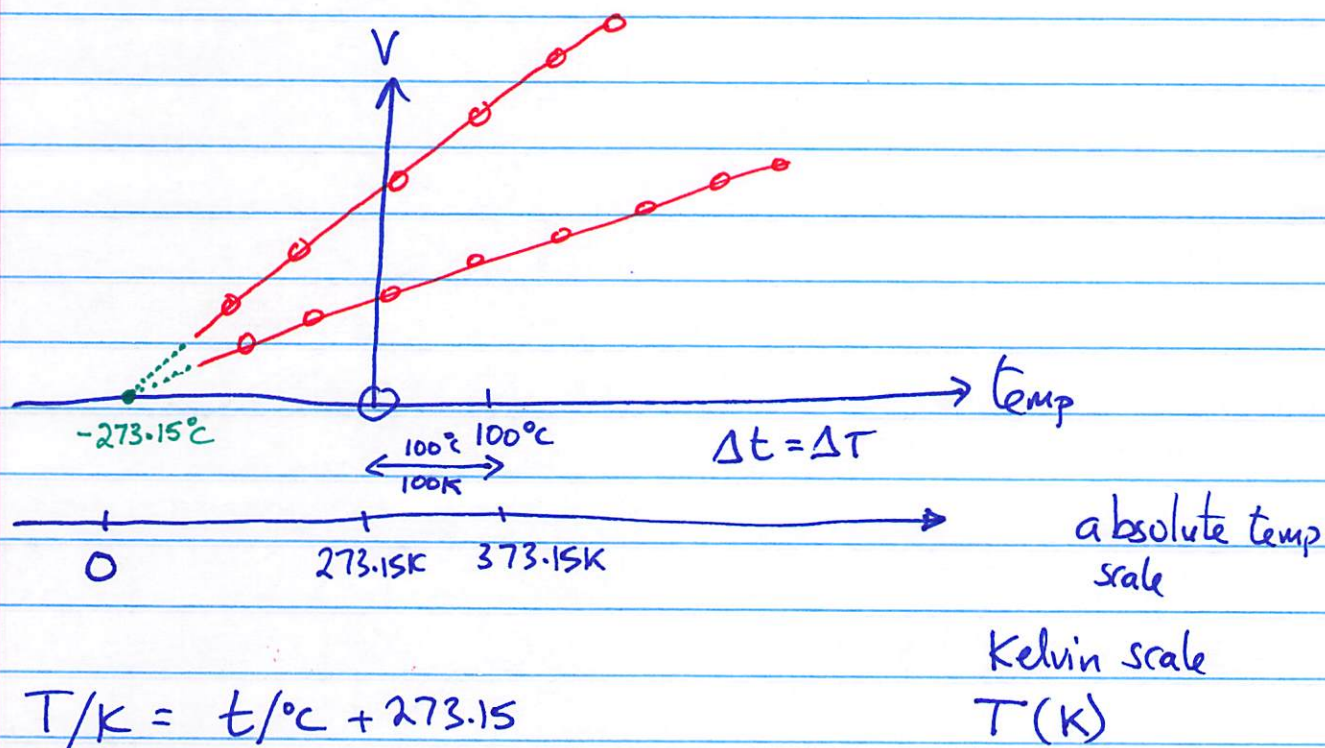 V
temp
-273.15°C
100°C
100°C
100K
Δt = ΔT
0
273.15K
373.15K
absolute temp
scale
Kelvin scale
T/K = t/°C + 273.15
T(K)